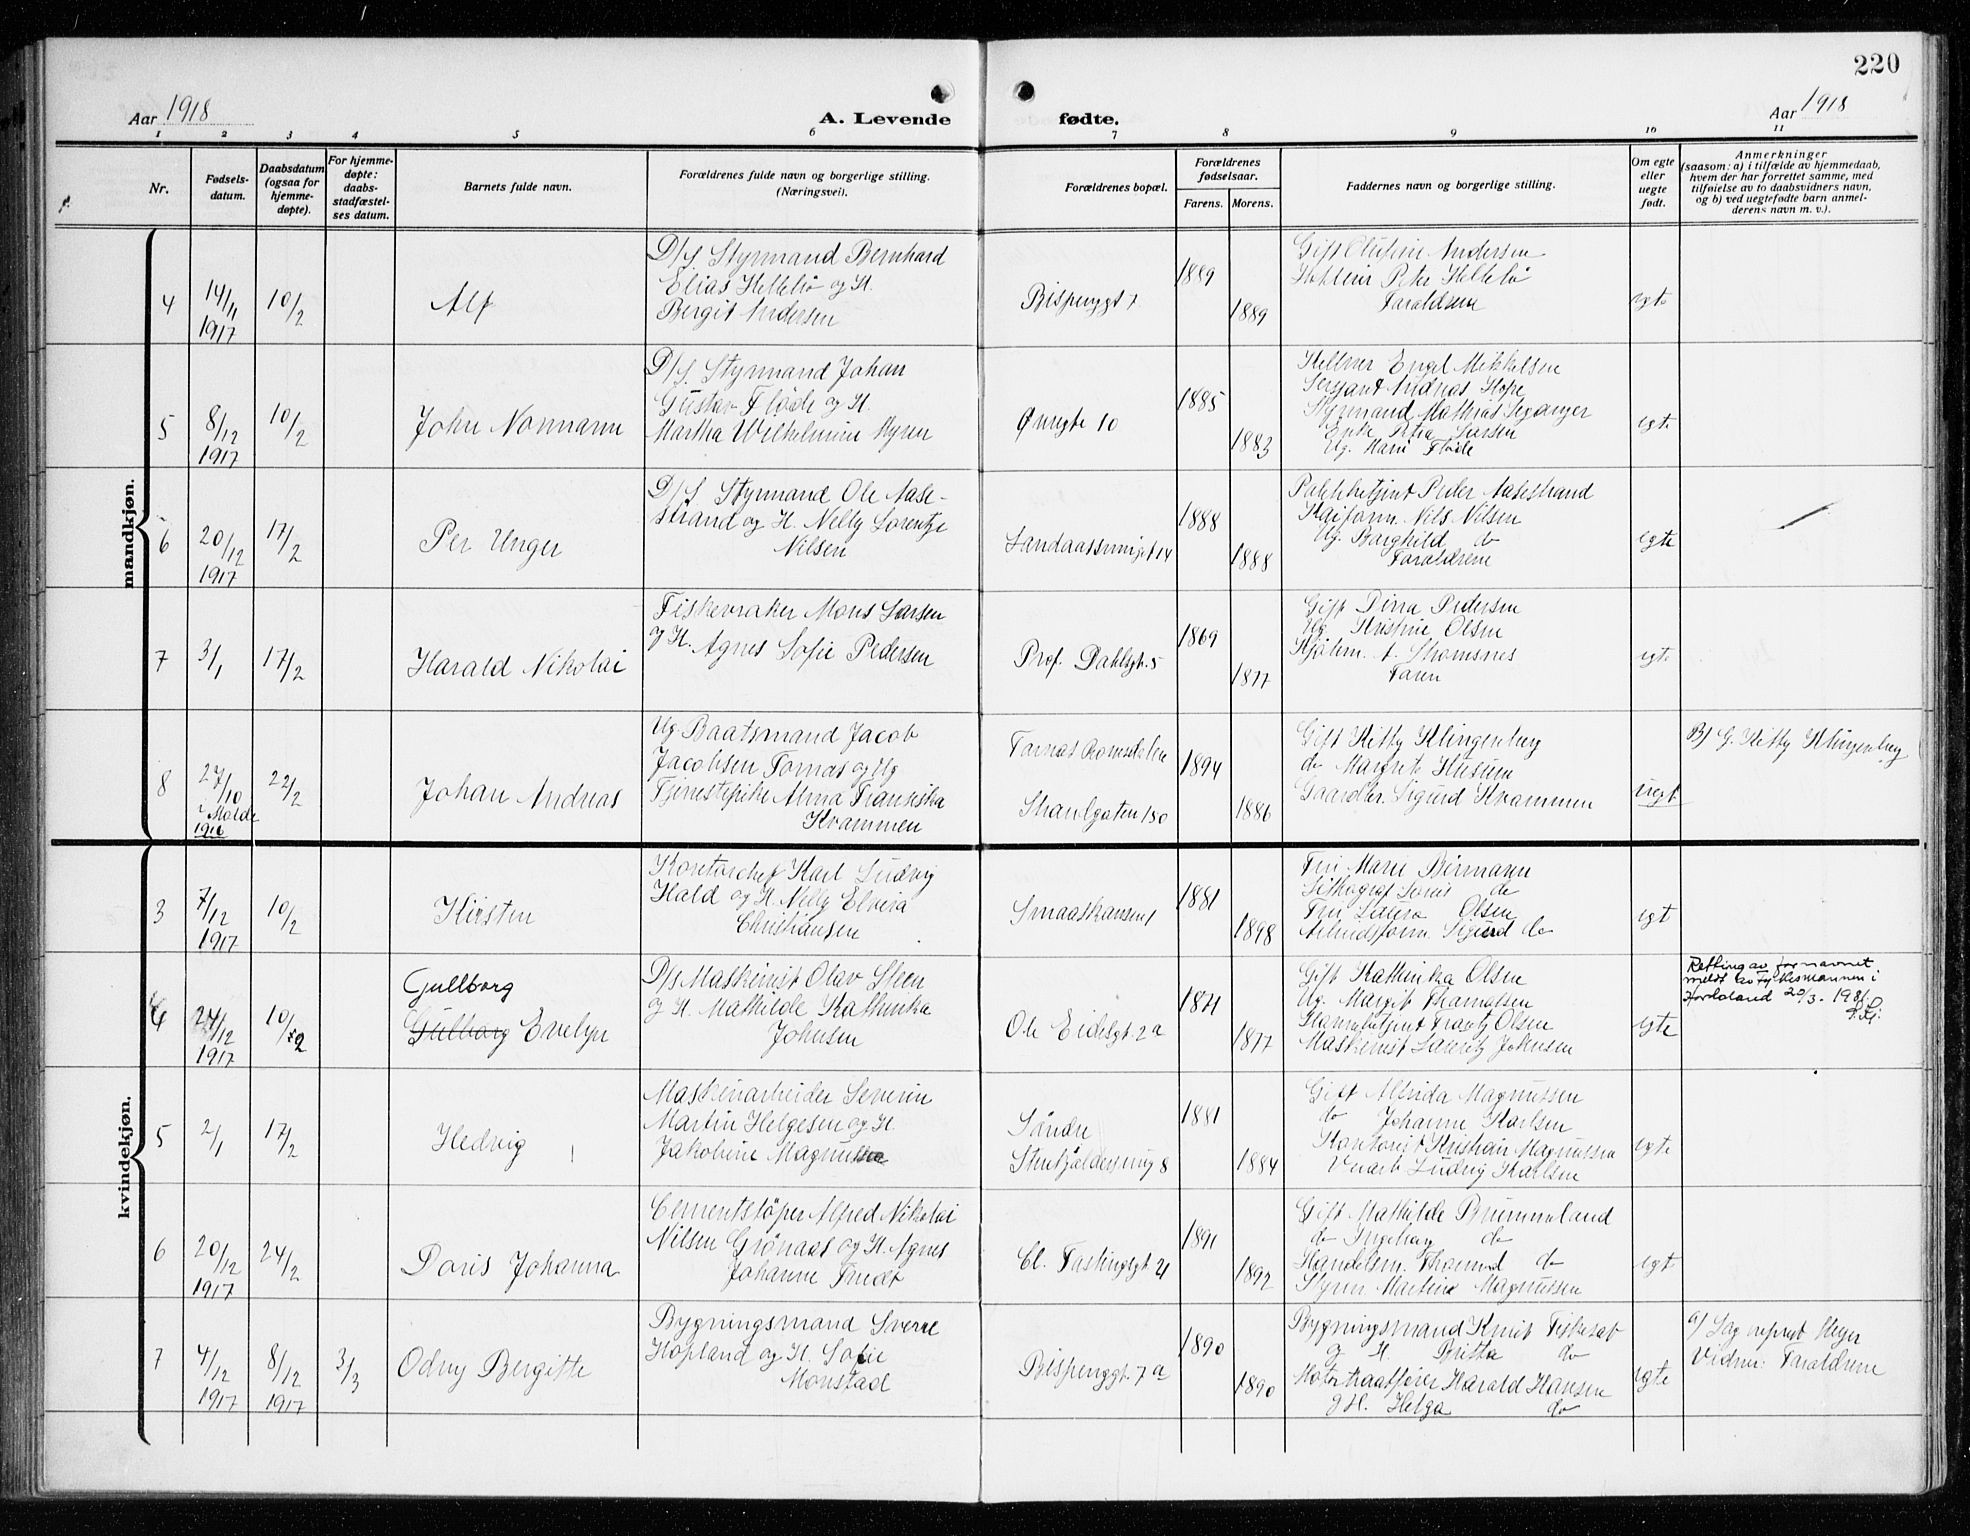 220
Aar 1918
A. Levende fødte.
Aar 1918
1 2 3 4 5 6 7 8 9 10 11
Nr.
Fødsels-
datum.
Daabsdatum
(ogsaa for
hjemme-
døpte).
For hjemme-
døpte:
daabs-
stadfæstel-
ses datum.
Barnets fulde navn.
Forældrenes fulde navn og borgerlige stilling.
(Næringsvei).
Forældrenes bopæl.
Forældrenes
fødselsaar.
Farens. Morens.
Faddernes navn og borgerlige stilling.
Om egte
eller
uegte
født.
Anmerkninger
(saasom: a) i tilfælde av hjemmedaab,
hvem der har forrettet samme, med
tilføielse av to daabsvidners navn,
og b) ved uegtefødte barn anmel-
derens navn m. v.).
mandkjøn.
4
14/11
1917
10/2
Alf
D/S. Styrmand Bernhard
Elias Hellesö og H.
Bergit Andersen
Bispenggt 7
1889
1889
Gift Andersen
Peter Hellesö
Forældrene
egte
5
8/12
1917
10/2
John Normann
D/S. Styrmand Johan
Gustav Flöde og H.
Martha Wilhelmine Myren
Øvregte 10
1885
1883
Kellner Engel Mikkelsen
Sersjant Andreas Hope
Styrmand Mathias Leganger
Enke Petra Larsen
Ug. Marie Flöde
egte
6
20/12
1917
17/2
Per Unger
D/S Styrmand Ole Aase-
strand og H. Nelly Lorentze
Nilsen
Landaassvinget 14
1888
1888
Pakkhetjent Peder Aasestrand
Kaiform. Nils Nilsen
Ug. Borghild do
Forældrene
egte
7
3/1
17/2
Harald Nikolai
Fiskevraker Mons Larsen
og H. Agnes Sofie Pedersen
Prof. Dahlsgt. 5
1869
1877
Gift Dina Pedersen
Ug. Kristine Olsen
A. Thomsnes
Faren
egte
8
27/10
i Molde
1916
22/2
Johan Andreas
Ug Baatsmand Jacob
Jacobsen Tornas og Ug
Tjenestepike Alma Fransiska
Krammen
Tornas Romsdalen
Strandgaten 150
1894
1886
Gift Kitty Klingenberg
do Margrete Husum
Gaardbr. Sigurd Krammen
uegt
B) G. Kitty Klingenberg
kvindekjøn.
3
7/12
1917
10/2
Kirsten
Kontorchef Karl Ludvig
Hald og H. Nelly Elvira
Christiansen
Smaaskansen 1
1881
1898
Fru Marie Börmann
Lithograf Louis do
Fru Laura Olsen
Arbeidsform. Sigurd do
egt
4
24/12
1917
10/2
Gullborg
Gulborg Evelyn
D/S Maskinist Olav Steen
og H. Mathilde Kathinka
Johnsen
Ole Eidesgt. 2a
1871
1877
Gift Kathinka Olsen
Ug. Margit Thomassen
Frantz Olsen
Maskinist Lauritz Johnsen
egte
Retting av fornavnet
meldt av Fylkesmannen i
Hordaland 20/3. 198
5
2/1
17/2
Hedvig
Maskinarbeider Severin
Martin Helgesen og H.
Jakobine Magnussen
Söndre
Stenkjeldersmug 8
1881
1884
Gift Alfrida Magnussen
do Johanne Karlsen
Kontorist Kristian Magnussen
Verarb Ludvig Karlsen
egte
6
20/12
1917
24/2
Doris Johanna
Cementstöper Alfred Nikolai
Nilsen Grönaas og H. Agnes
Johanne
Cl. Fastingsgt 21
1891
1892
Gift Mathilde Brummeland
do Ingeborg do
Handelsm. Thomod do
Styrm Martin Magnussen
egt
7
4/12
1917
8/12
1917
3/3
Odny Bergitte
Bygningsmand Sverre
Hopland og H. Sofie
Monstad
Bispenggt. 7a
1890
1890
Bygningsmand Knut Tjikesat
og H. Britta do
Motorbaatförer Harald Hansen
g H. Helga do
egte
a) Sog neprest Heyer
Vidner: Forældrene